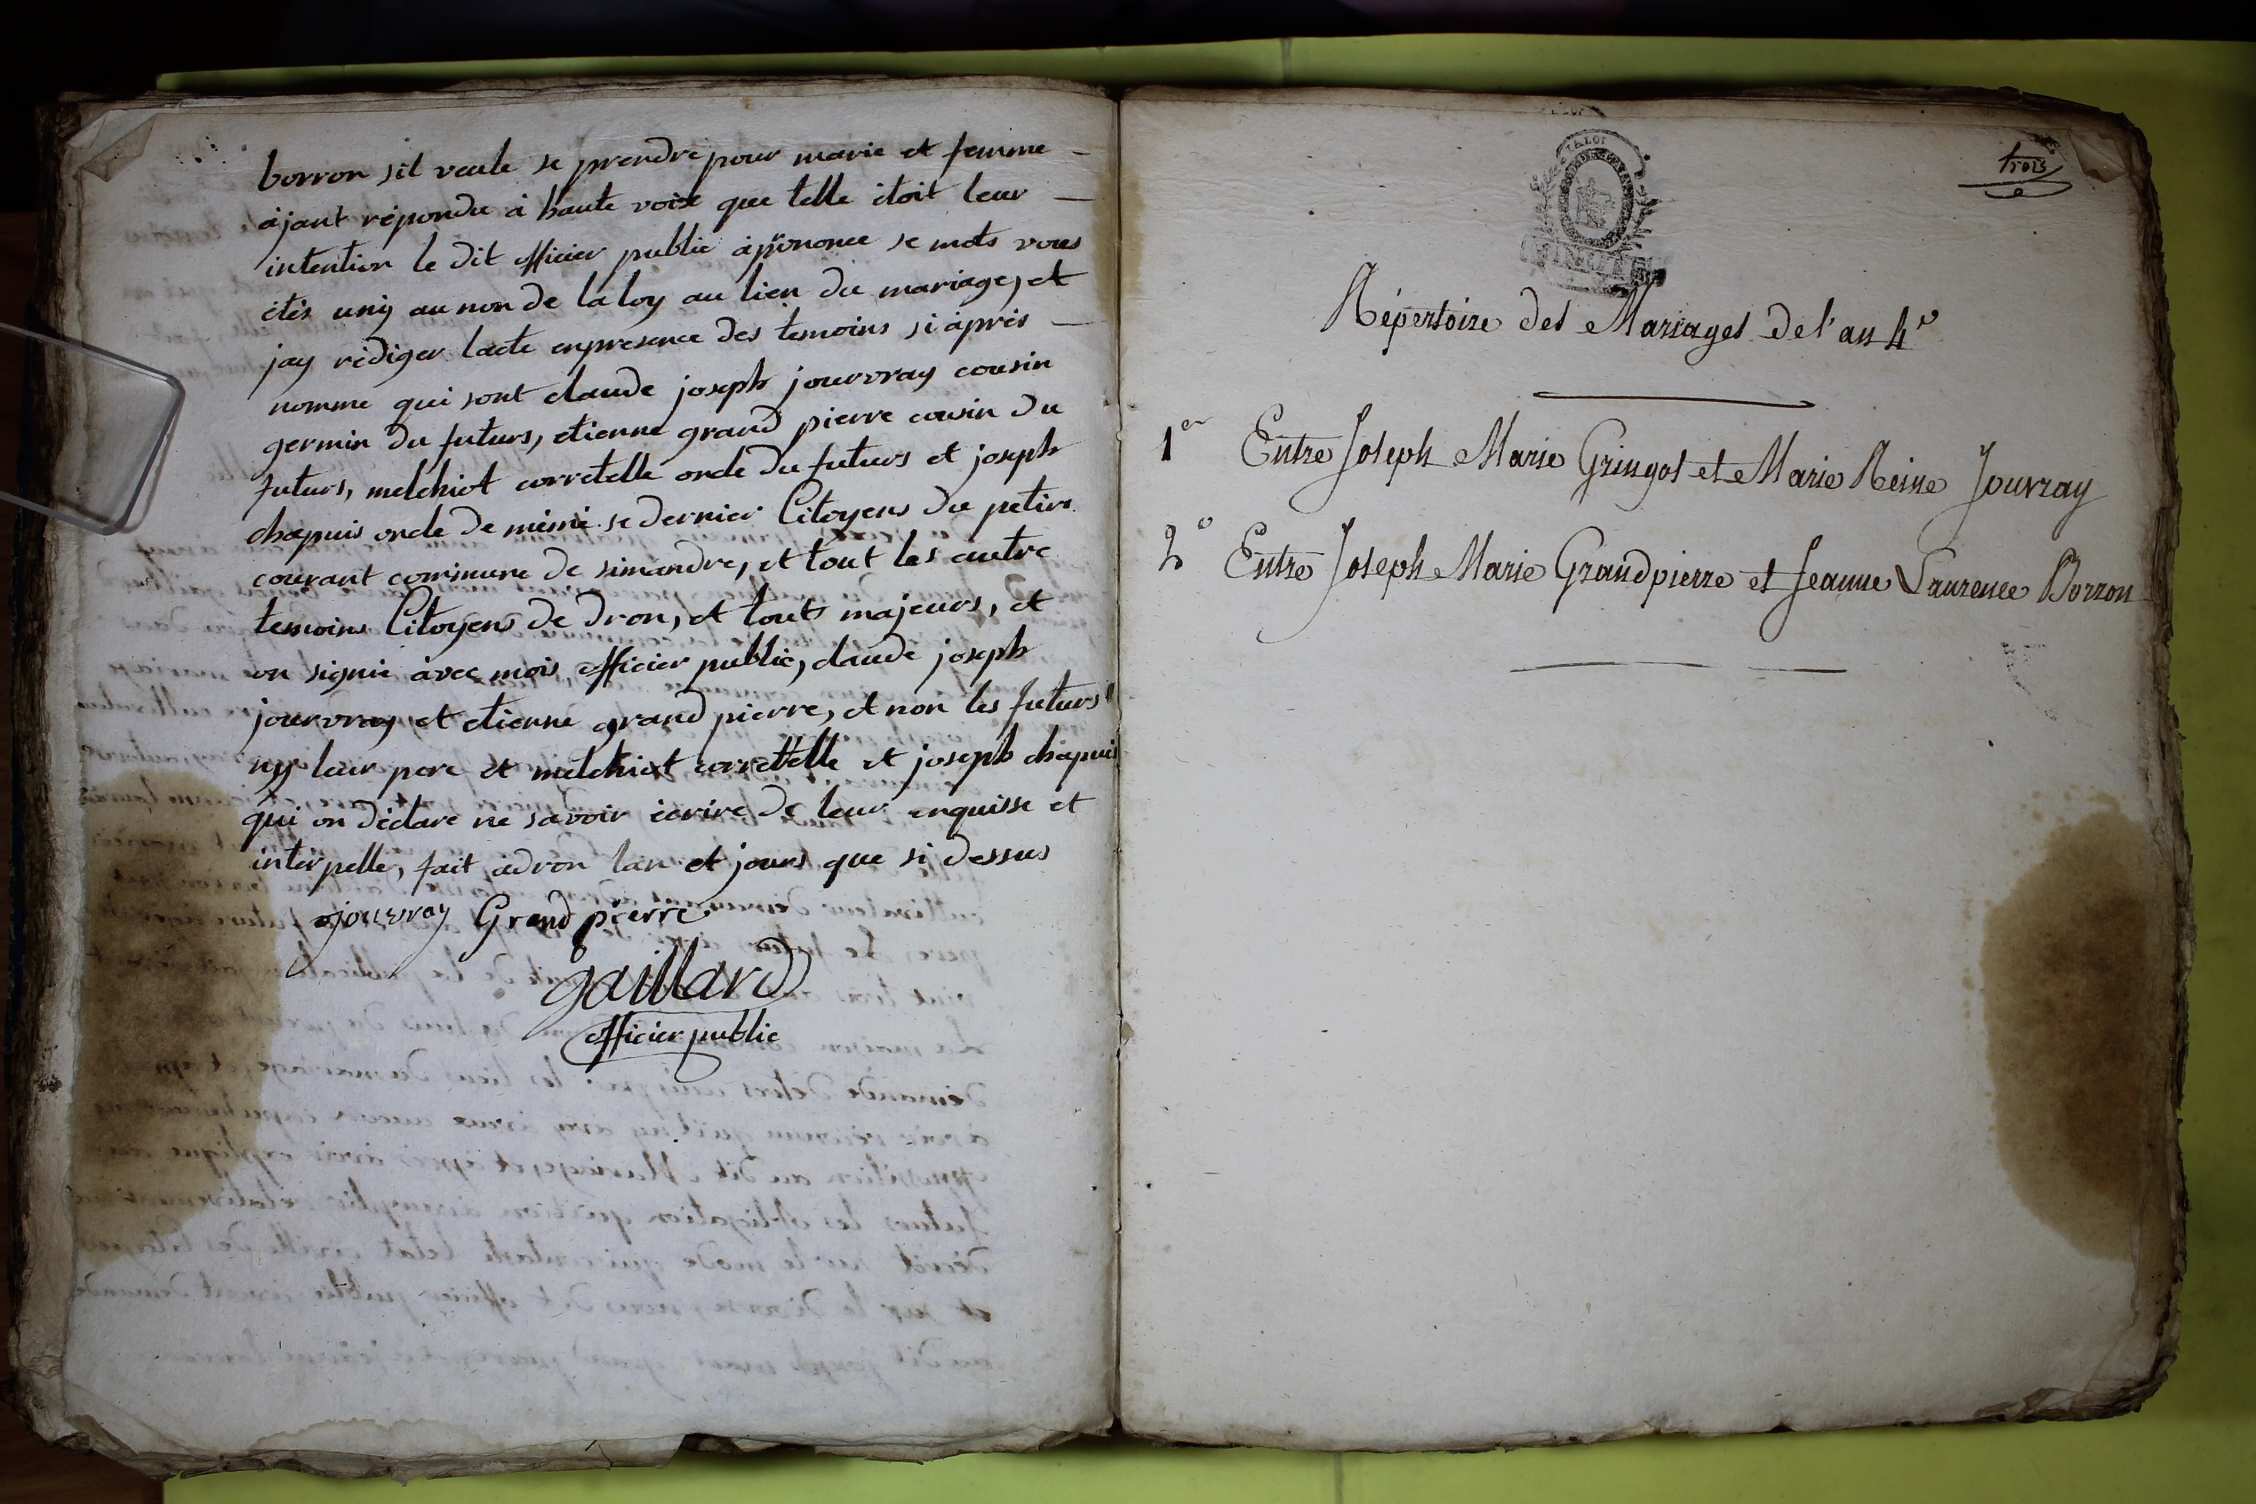 borron sil veule se prendre pour marie et femme
àjant répondu à haute voix que telle étoit leur
intention le dit officier public à prononce se mots vous
étés unij au non de la loy au lien du mariage, et
jay rédiger lacte enpresence des temoins si àprès
nomme qui sont claude joseph jouvray cousin
germin du futurs, etienne grand pierre cousin du
futurs, melchiot corretelle oncle du futurs et joseph
chapuis oncle de mème se dernier Citoyens du petits
courant commune de simandre, et tout les autre
temoins Citoyens de dron, et touts majeurs, et
on signié àvec mois officier public, claude joseph
jouvray et etienne grand pierre, et non les futurs
ny leur pere et melchiot corretelle et joseph chapuis
qui on déclare ne savoir écrire de leur enquisse et
interpelle, fait àdron lan et jours que si dessus
jouvray Grand pierre
gaillard
officier public
trois
LA LOI
Répertoire des Mariages de l'an 4e
1er Entre Joseph Marie Gringot et Marie Reine Jouvray
2e Entre Joseph Marie Grandpierre et Jeanne Laurence Borron